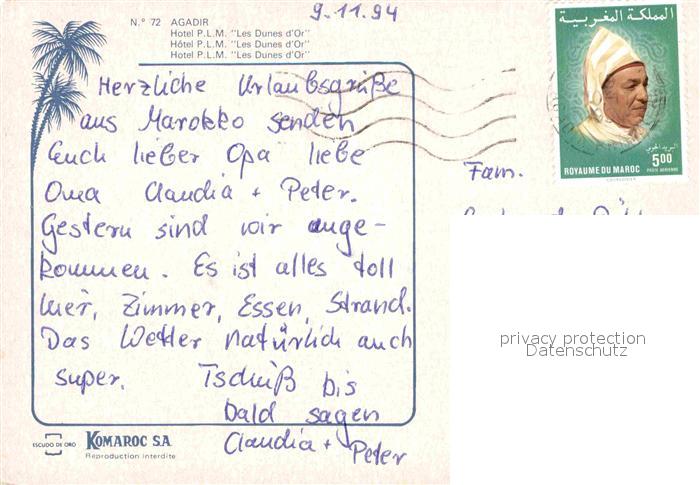 9.11.94
N.° 72 AGADIR
Hotel P.L.M. "Les Dunes d'Or"
Hôtel P.L.M. "Les Dunes d'Or"
Hotel P.L.M. "Les Dunes d'Or"
المملكة المغربية
البريد الجوي
5,00
ROYAUME DU MAROC
POSTE AERIENNE
Herzliche Urlaubsgrüße
aus Marokko senden
Euch lieber Opa liebe
Oma Claudia + Peter.
Gestern sind wir ange-
kommen. Es ist alles toll
hier, Zimmer, Essen, Strand.
Das Wetter natürlich auch
super. Tschüß bis
bald sagen
Claudia + Peter
Fam.
privacy protection
Datenschutz
ESCUDO DE ORO
KOMAROC S.A.
Reproduction interdite